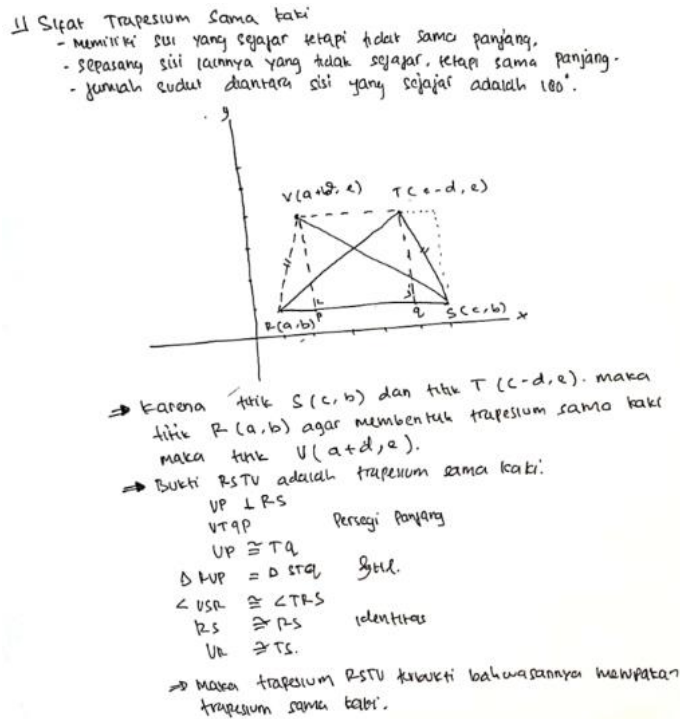 1) Sifat Trapesium Sama kaki
- Memiliki sisi yang sejajar tetapi tidak sama panjang.
- sepasang sisi lainnya yang tidak sejajar, tetapi sama panjang.
- jumlah sudut diantara sisi yang sejajar adalah 180°.
y
V(a+d, e) T(c-d, e)
R(a,b) P q S(c,b) x
⇒ Karena titik S(c,b) dan titik T (c-d,e). maka
titik R (a,b) agar membentuk trapesium sama kaki
maka titik V(a+d,e).
⇒ Bukti RSTV adalah trapesium sama kaki.
VP ⊥ RS
VTqP Persegi Panjang
VP ≅ TQ
Δ RVP = Δ STQ
∠ VSR ≅ ∠TRS
RS ≅ RS identitas
VR ≅ TS.
⇒ Maka trapesium RSTV terbukti bahwasannya merupakan
trapesium sama kaki.